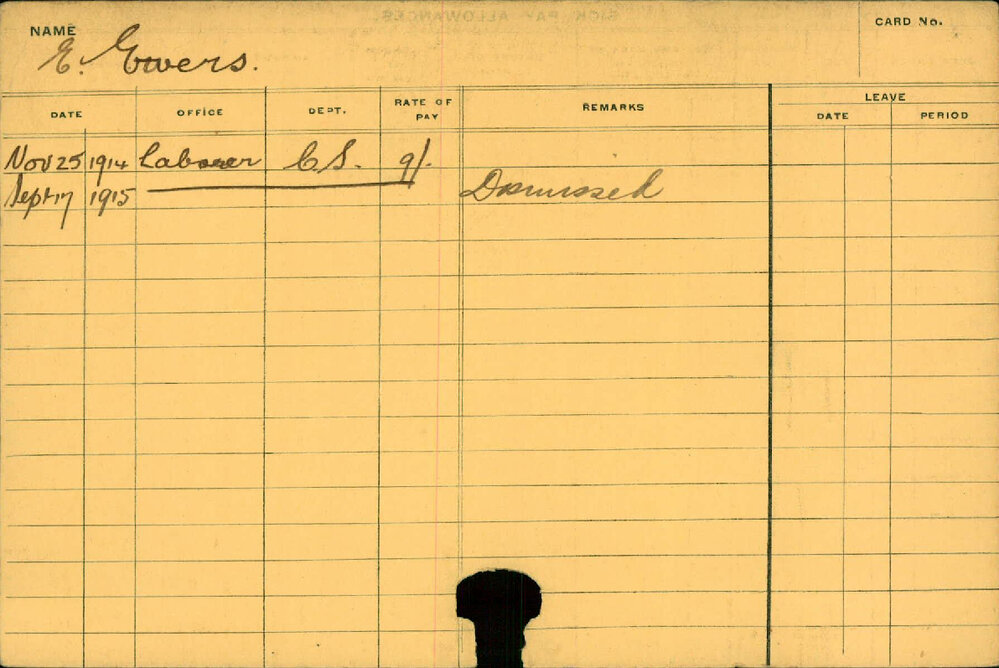 SICK PAY ALLOWANCES.
NAME
E. Ewers.
CARD No.
DATE OFFICE DEPT. RATE OF PAY REMARKS LEAVE
DATE PERIOD
Nov 25 1914 Laborer C.S. 9/.
Sept 17 1915 Dismissed